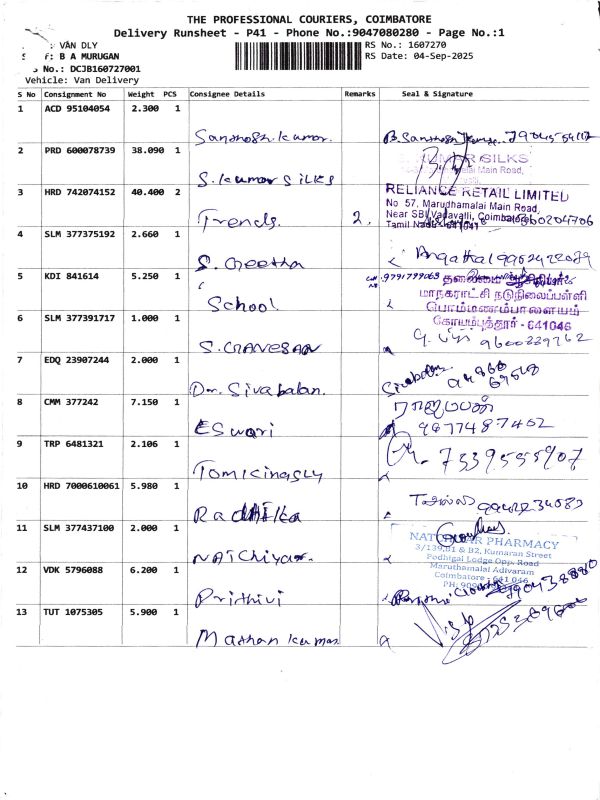 THE PROFESSIONAL COURIERS, COIMBATORE
Delivery Runsheet - P41 - Phone No.:9047080280 - Page No.:1
VAN DLY
B A MURUGAN
No.: DCJB160727001
Vehicle: Van Delivery
RS No.: 1607270
RS Date: 04-Sep-2025
S No Consignment No Weight PCS Consignee Details Remarks Seal & Signature
1 ACD 95104054 2.300 1
Santhosh kumar.
2 PRD 600078739 38.090 1
S. kumar SILKS
KUMAR SILKS
Main Road,
3 HRD 742074152 40.400 2
Trends. 2.
RELIANCE RETAIL LIMITED
No. 57, Marudhamalai Main Road,
Near SBI Vadavalli, Coimbatore
Tamil Nadu - 641041
4 SLM 377375192 2.660 1
S. Geetha
5 KDI 841614 5.250 1
School
9791799063
தலைமை ஆசிரியர்
மாநகராட்சி நடுநிலைப்பள்ளி
பொம்மணம்பாளையம்
கோயம்புத்தூர் - 641046
6 SLM 377391717 1.000 1
S. GANESAN
9600239762
7 EDQ 23907244 2.000 1
Dr. Sivabalan.
8 CMM 377242 7.150 1
ESwari
9877487402
9 TRP 6481321 2.106 1
7339555907
10 HRD 7000610061 5.980 1
Radhika
11 SLM 377437100 2.000 1
NAtchiyar.
PHARMACY
3/139,B1 & B2, Kumaran Street
Podhigai Lodge Opp. Road
Maruthamalai Adivaram
Coimbatore - 641 046
12 VDK 5796088 6.200 1
Prithivi
13 TUT 1075305 5.900 1
Mathan kumar